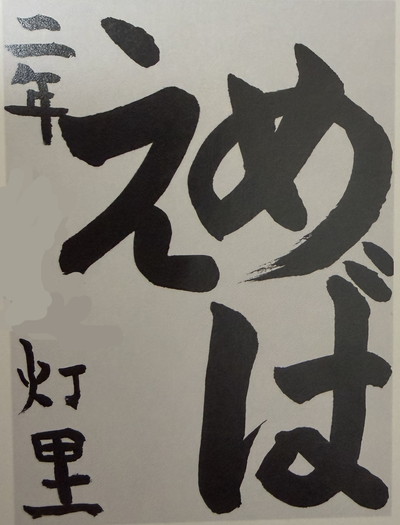 めば
え
二年
灯里